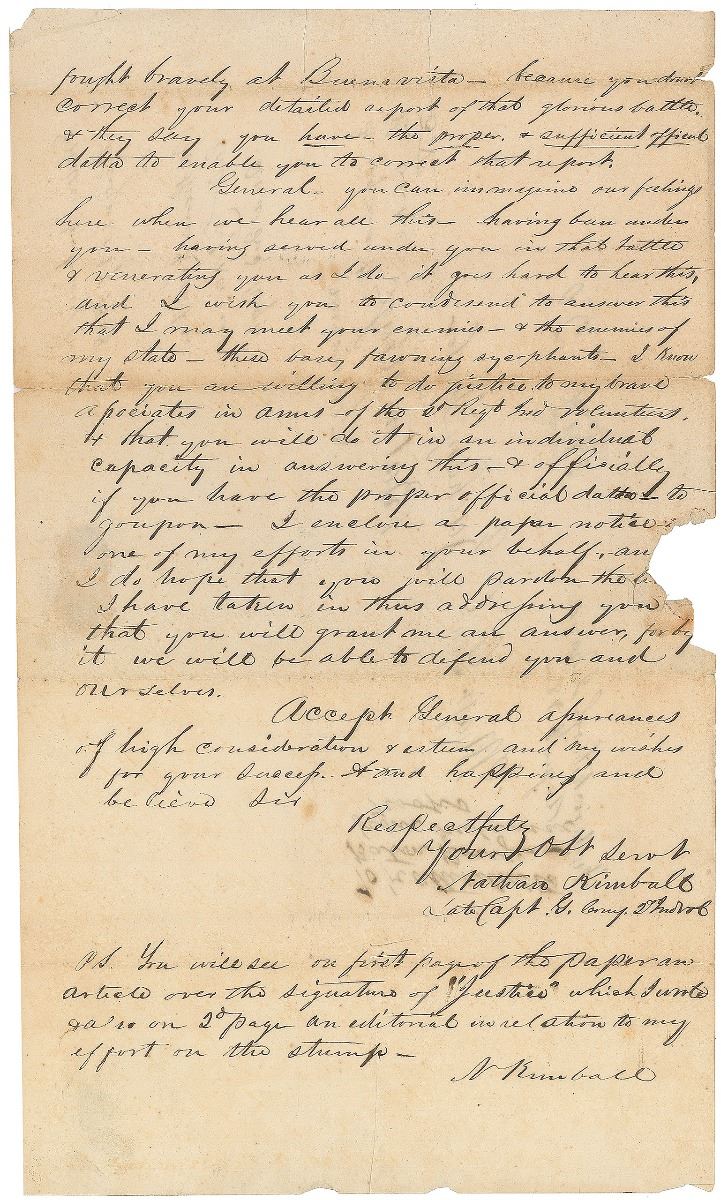 fought bravely at Buenavista – because you dont
correct your detailed report of that glorious battle.
& they say you have – the proper, & sufficient official
datta to enable you to correct that report.
General – you can immagine our feelings
here when we hear all this – having been under
you – having served under you in that battle
& venerating you as I do it goes hard to hear this,
and I wish you to condesend to answer this
that I may meet your enemies – & the enemies of
my state – these base, fawning sycophants – I know
that you are willing to do justice to my brave
asociates in arms – of the 2d Regt Ind volunteers,
& that you will do it in an individual
capacity in answering this – & officially
if you have the proper official datta – to
goupon – I enclose a paper notice
one of my efforts in your behalf, an
I do hope that you will pardon the
I have taken in thus addressing you
that you will grant me an answer, for by
it we will be able to defend you and
ourselves.
Accept General assureances
of high consideration & esteem and my wishes
for your success & and happiness and
believe Sir
Respectfully
Yours Obt Servt
Nathan Kimball
Late Capt. G. Comp. 2d Ind vol
P.S. You will see on first page of the paper an
article over the signature of "Justice" which I wrote
& also on 2d page an editorial in relation to my
effort on the stump –
N Kimball